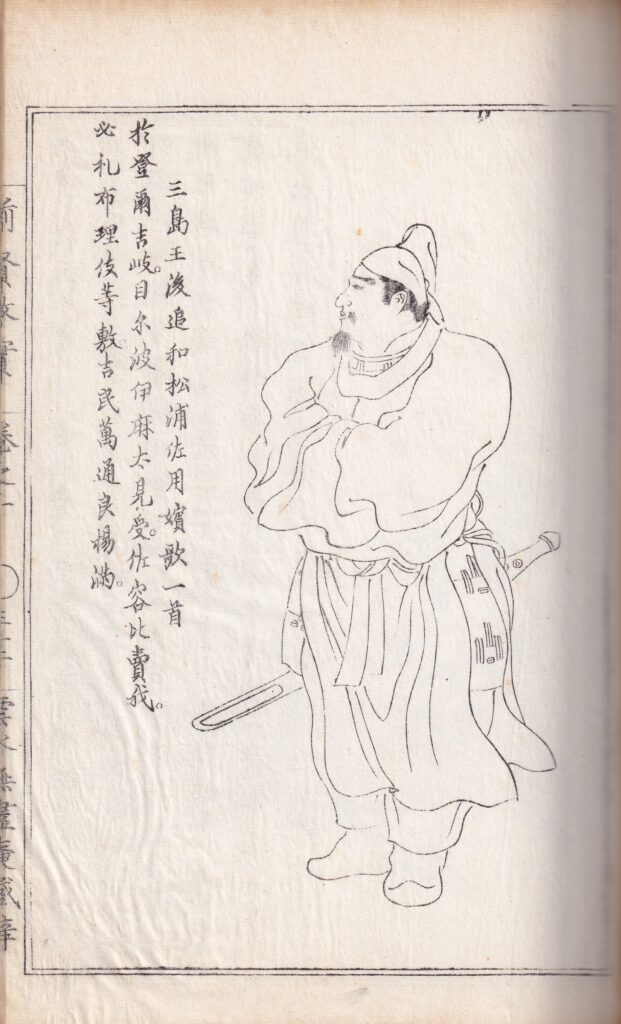 三島王後追和松浦佐用嬪歌一首
於登爾吉岐。目尔波伊麻太見受。佐容比賣我。
必礼布理伎等敷吉民萬通良楊満。
前賢故實 卷之一
雲水無盡庵藏梓